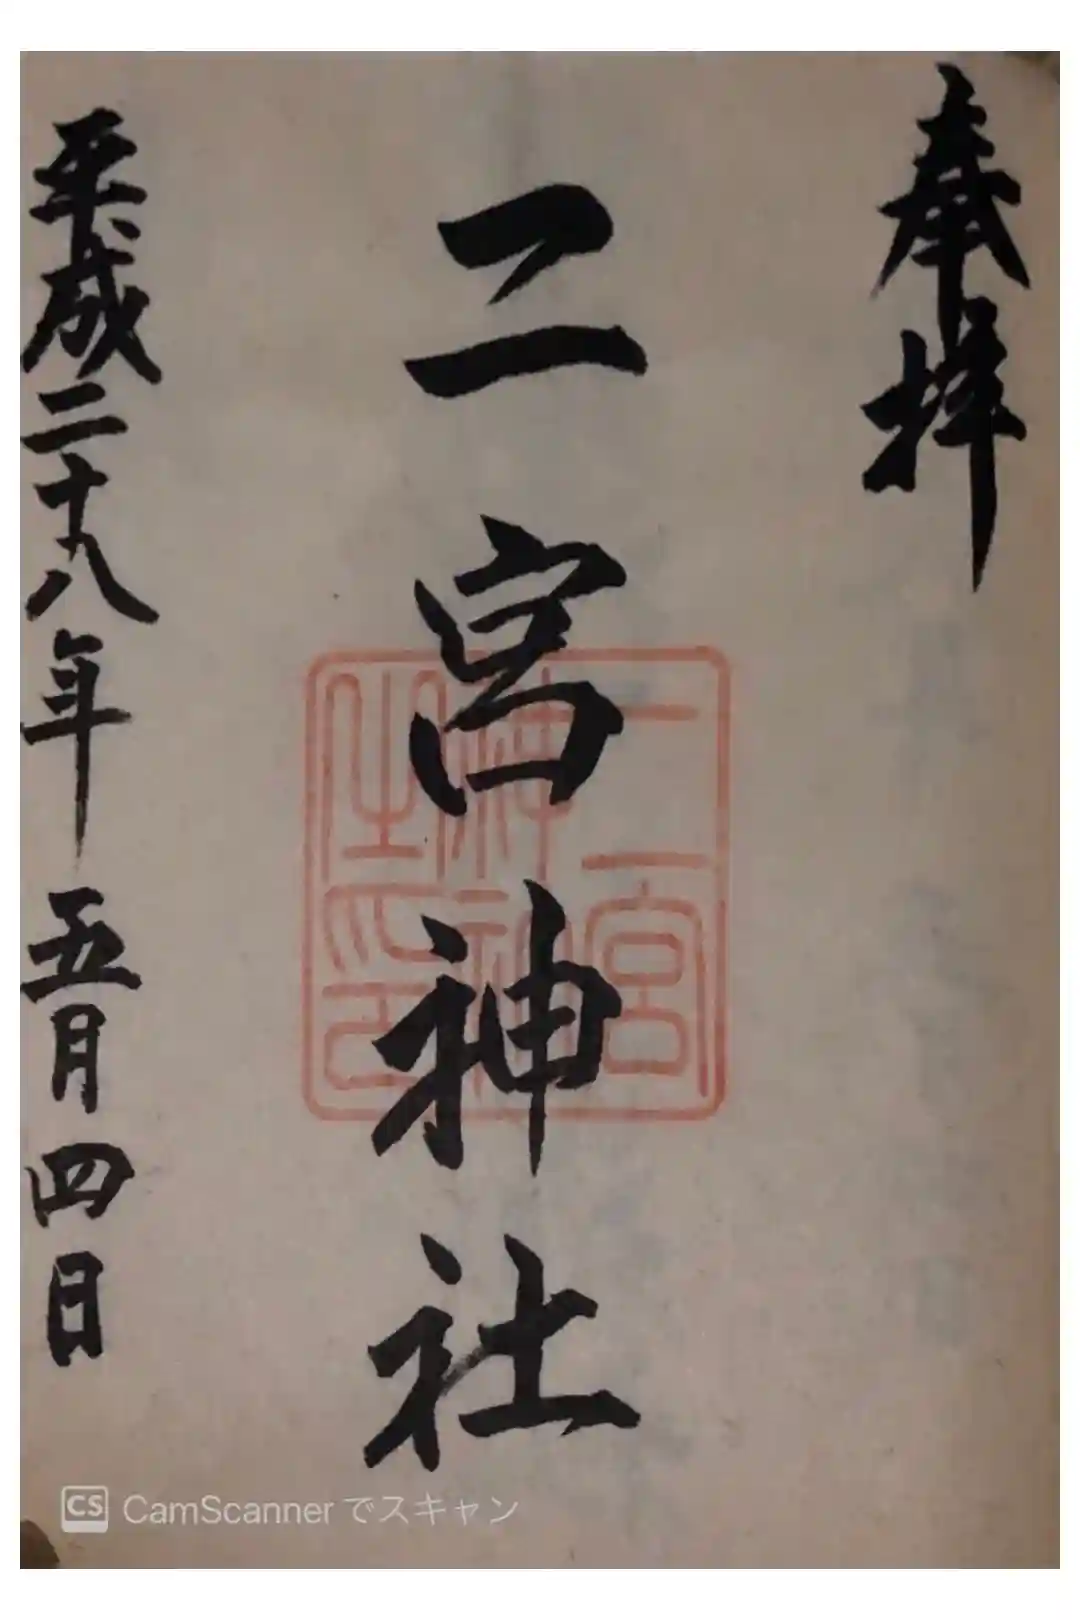 奉拝
二宮神社
二宮神社之印
平成二十八年五月四日
CS CamScanner でスキャン